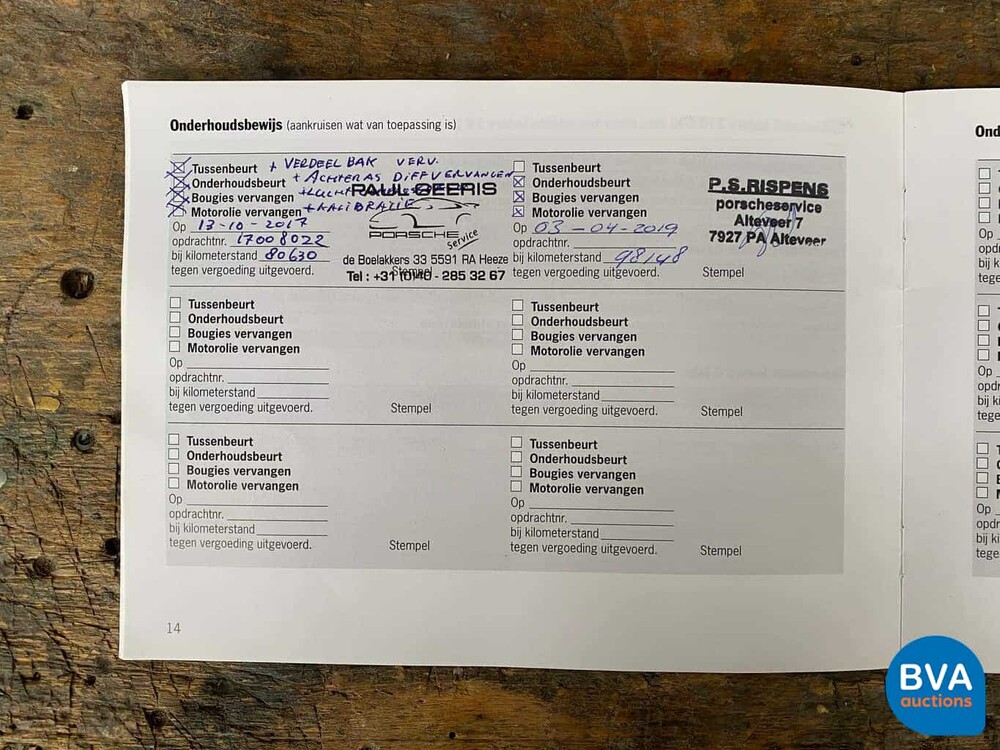 Onderhoudsbewijs (aankruisen wat van toepassing is)
Tussenbeurt + VERDEELBAK VERV.
Onderhoudsbeurt + ACHTERAS DIFF VERVANGEN
Bougies vervangen
Motorolie vervangen + KALIBRATIE
Op 13-10-2017
opdrachtnr. 17008022
bij kilometerstand 80630
tegen vergoeding uitgevoerd.
Stempel
PAUL GEERIS
PORSCHE service
de Boelakkers 33 5591 RA Heeze
Tel : +31 (0)40 - 285 32 67
Tussenbeurt
Onderhoudsbeurt
Bougies vervangen
Motorolie vervangen
Op 03-04-2019
opdrachtnr.
bij kilometerstand 98148
tegen vergoeding uitgevoerd.
Stempel
P.S.RISPENS
porscheservice
Alteveer 7
7927 PA Alteveer
Tussenbeurt
Onderhoudsbeurt
Bougies vervangen
Motorolie vervangen
Op
opdrachtnr.
bij kilometerstand
tegen vergoeding uitgevoerd.
Stempel
Tussenbeurt
Onderhoudsbeurt
Bougies vervangen
Motorolie vervangen
Op
opdrachtnr.
bij kilometerstand
tegen vergoeding uitgevoerd.
Stempel
Tussenbeurt
Onderhoudsbeurt
Bougies vervangen
Motorolie vervangen
Op
opdrachtnr.
bij kilometerstand
tegen vergoeding uitgevoerd.
Stempel
Tussenbeurt
Onderhoudsbeurt
Bougies vervangen
Motorolie vervangen
Op
opdrachtnr.
bij kilometerstand
tegen vergoeding uitgevoerd.
Stempel
14
Ond
Op
opd
bij k
tege
Op
opdr
bij ki
tege
Op
opdr
bij ki
tege
BVA
auctions